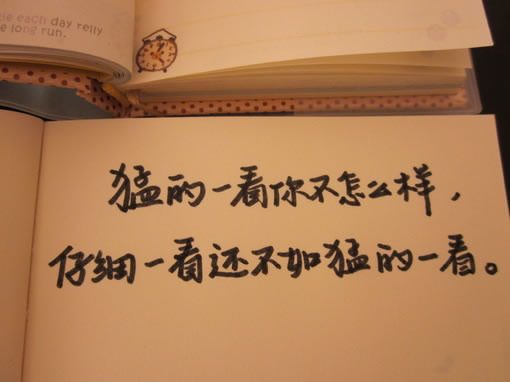 each day relly
e long run.
猛的一看你不怎么样，
仔细一看还不如猛的一看。